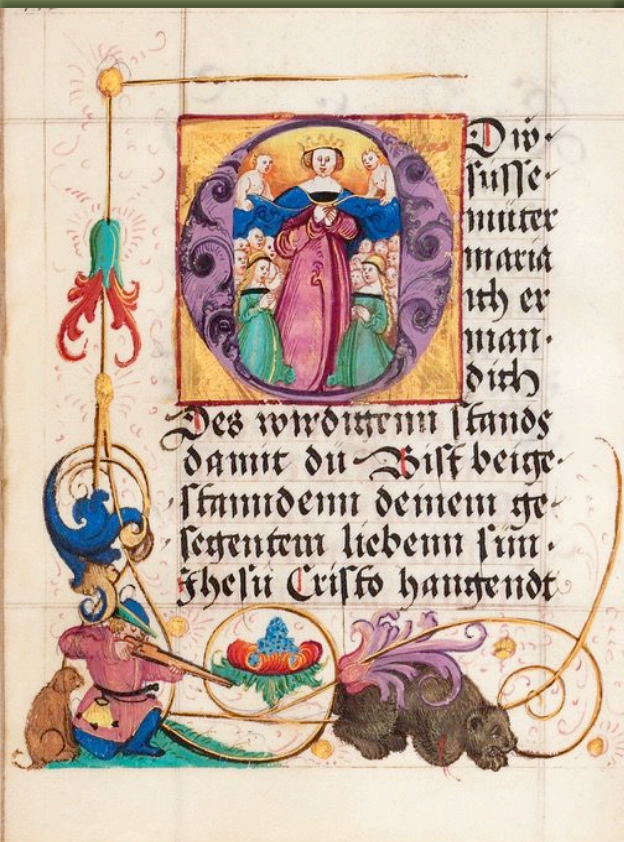 O Dw·
süsse·
müter
maria
ich er
man·
dich
Des wirdigenn stands
damit dü Bist beige·
stanndenn deinem ge·
segentem liebenn sün·
Jhesü Cristo hangendt